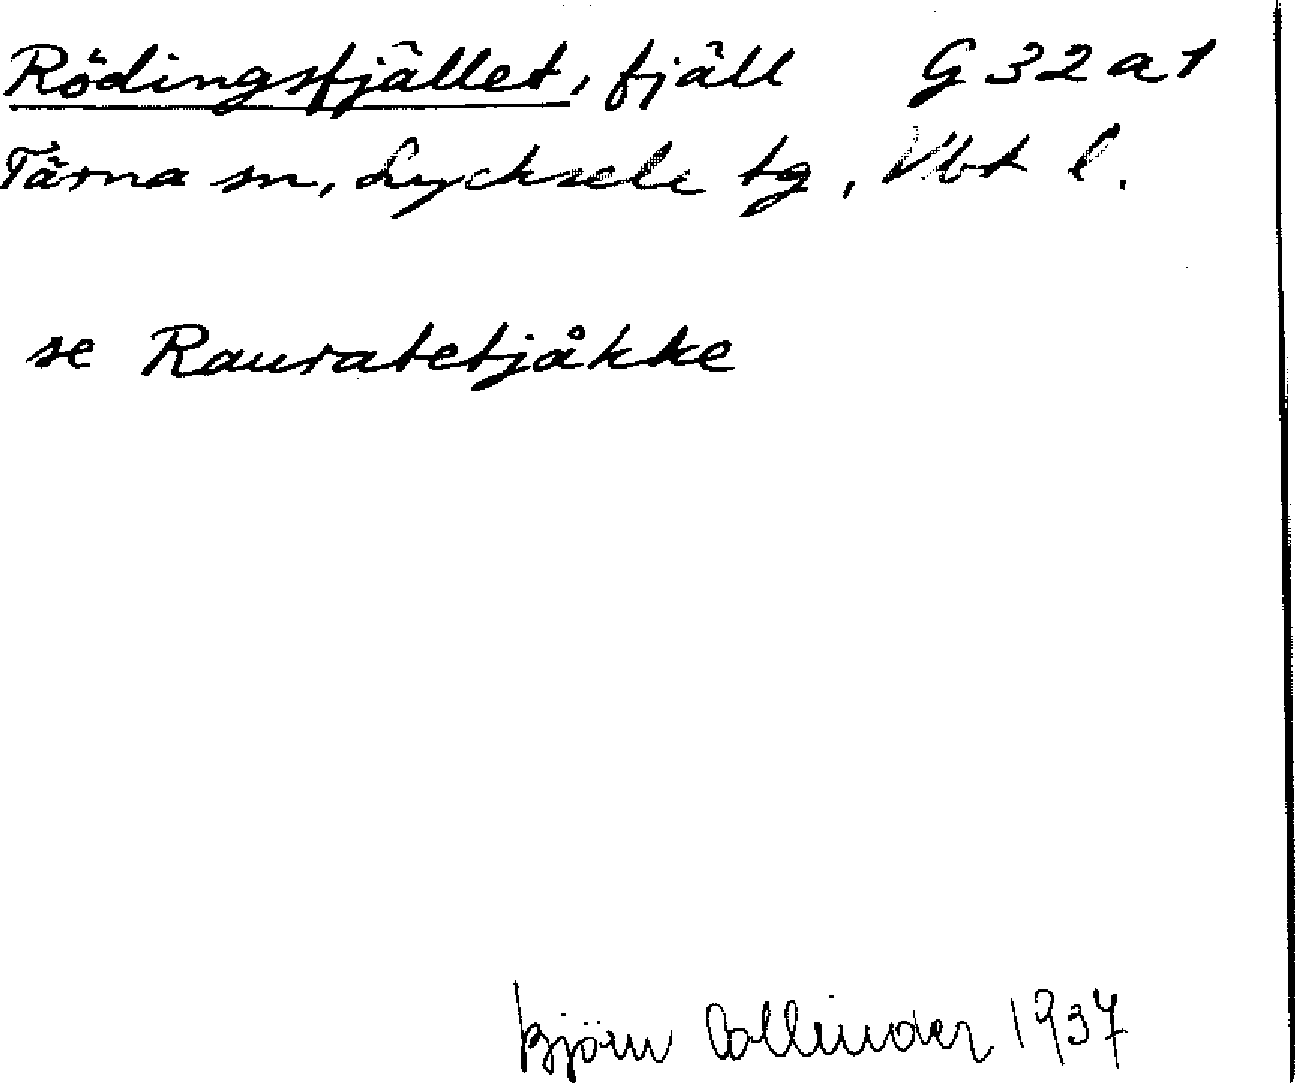 Rödingsfjället, fjäll G 32 a 1
Tärna sn, Lycksele tg, Vbt l.
se Rauratetjåkke
Björn Collinder 1937